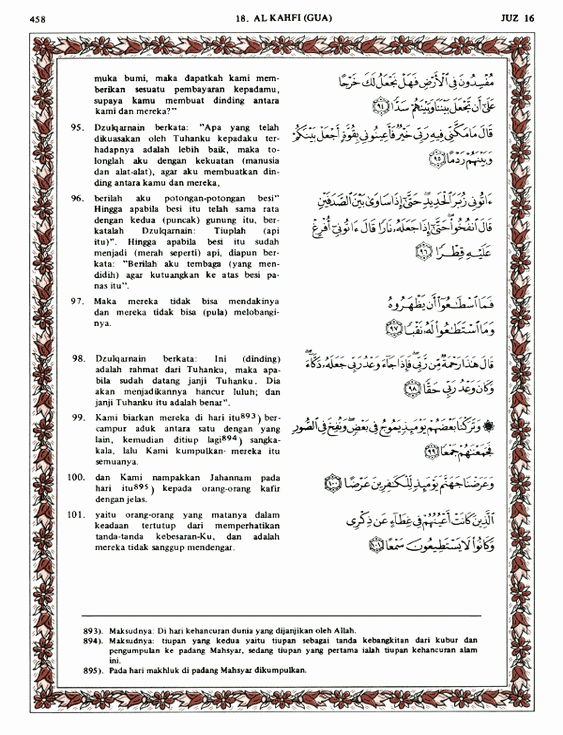 458
18. AL KAHFI (GUA)
JUZ 16
muka bumi, maka dapatkah kami mem-
berikan sesuatu pembayaran kepadamu,
supaya kamu membuat dinding antara
kami dan mereka?"
95. Dzulqarnain berkata: "Apa yang telah
dikuasakan oleh Tuhanku kepadaku ter-
hadapnya adalah lebih baik, maka to-
longlah aku dengan kekuatan (manusia
dan alat-alat), agar aku membuatkan din-
ding antara kamu dan mereka,
96. berilah aku potongan-potongan besi"
Hingga apabila besi itu telah sama rata
dengan kedua (puncak) gunung itu, ber-
katalah Dzulqarnain: Tiuplah (api
itu)". Hingga apabila besi itu sudah
menjadi (merah seperti) api, diapun ber-
kata: "Berilah aku tembaga (yang men-
didih) agar kutuangkan ke atas besi pa-
nas itu".
97. Maka mereka tidak bisa mendakinya
dan mereka tidak bisa (pula) melobangi-
nya.
98. Dzulqarnain berkata: Ini (dinding)
adalah rahmat dari Tuhanku, maka apa-
bila sudah datang janji Tuhanku. Dia
akan menjadikannya hancur luluh; dan
janji Tuhanku itu adalah benar".
99. Kami biarkan mereka di hari itu893) ber-
campur aduk antara satu dengan yang
lain, kemudian ditiup lagi894) sangka-
kala, lalu Kami kumpulkan mereka itu
semuanya.
100. dan Kami nampakkan Jahannam pada
hari itu895) kepada orang-orang kafir
dengan jelas.
101. yaitu orang-orang yang matanya dalam
keadaan tertutup dari memperhatikan
tanda-tanda kebesaran-Ku, dan adalah
mereka tidak sanggup mendengar.
مُفْسِدُونَ فِي الْأَرْضِ فَهَلْ نَجْعَلُ لَكَ خَرْجًا
عَلَىٰ أَن تَجْعَلَ بَيْنَنَا وَبَيْنَهُمْ سَدًّا ٩٤
قَالَ مَا مَكَّنِّي فِيهِ رَبِّي خَيْرٌ فَأَعِينُونِي بِقُوَّةٍ أَجْعَلْ بَيْنَكُمْ
وَبَيْنَهُمْ رَدْمًا ٩٥
ءَاتُونِي زُبَرَ الْحَدِيدِ حَتَّىٰ إِذَا سَاوَىٰ بَيْنَ الصَّدَفَيْنِ
قَالَ انفُخُوا حَتَّىٰ إِذَا جَعَلَهُ نَارًا قَالَ ءَاتُونِي أُفْرِغْ
عَلَيْهِ قِطْرًا ٩٦
فَمَا اسْطَاعُوا أَن يَظْهَرُوهُ
وَمَا اسْتَطَاعُوا لَهُ نَقْبًا ٩٧
قَالَ هَٰذَا رَحْمَةٌ مِّن رَّبِّي فَإِذَا جَاءَ وَعْدُ رَبِّي جَعَلَهُ دَكَّاءَ
وَكَانَ وَعْدُ رَبِّي حَقًّا ٩٨
۞ وَتَرَكْنَا بَعْضَهُمْ يَوْمَئِذٍ يَمُوجُ فِي بَعْضٍ وَنُفِخَ فِي الصُّورِ
فَجَمَعْنَاهُمْ جَمْعًا ٩٩
وَعَرَضْنَا جَهَنَّمَ يَوْمَئِذٍ لِّلْكَافِرِينَ عَرْضًا ١٠٠
الَّذِينَ كَانَتْ أَعْيُنُهُمْ فِي غِطَاءٍ عَن ذِكْرِي
وَكَانُوا لَا يَسْتَطِيعُونَ سَمْعًا ١٠١
893). Maksudnya: Di hari kehancuran dunia yang dijanjikan oleh Allah.
894). Maksudnya: tiupan yang kedua yaitu tiupan sebagai tanda kebangkitan dari kubur dan
pengumpulan ke padang Mahsyar, sedang tiupan yang pertama ialah tiupan kehancuran alam
ini.
895). Pada hari makhluk di padang Mahsyar dikumpulkan.